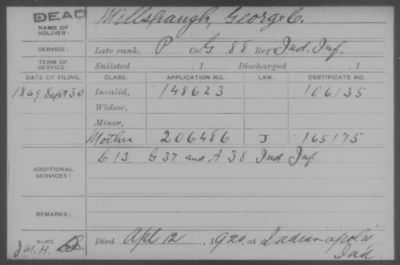 DEAD
NAME OF SOLDIER: Millspaugh, George C.
SERVICE: Late rank, P Co. G 88 Reg't Ind. Inf.
TERM OF SERVICE: Enlisted , 1 Discharged , 1
DATE OF FILING. CLASS. APPLICATION NO. LAW. CERTIFICATE NO.
1869 Sept 30 Invalid, 148623 106135
Widow,
Minor,
Mother 206486 J 165175
ADDITIONAL SERVICES: G 13 G 37 and A 38 Ind. Inf.
REMARKS:
3-471
J.M.H. Died Apl 12, 1920, at Indianapolis
Ind.